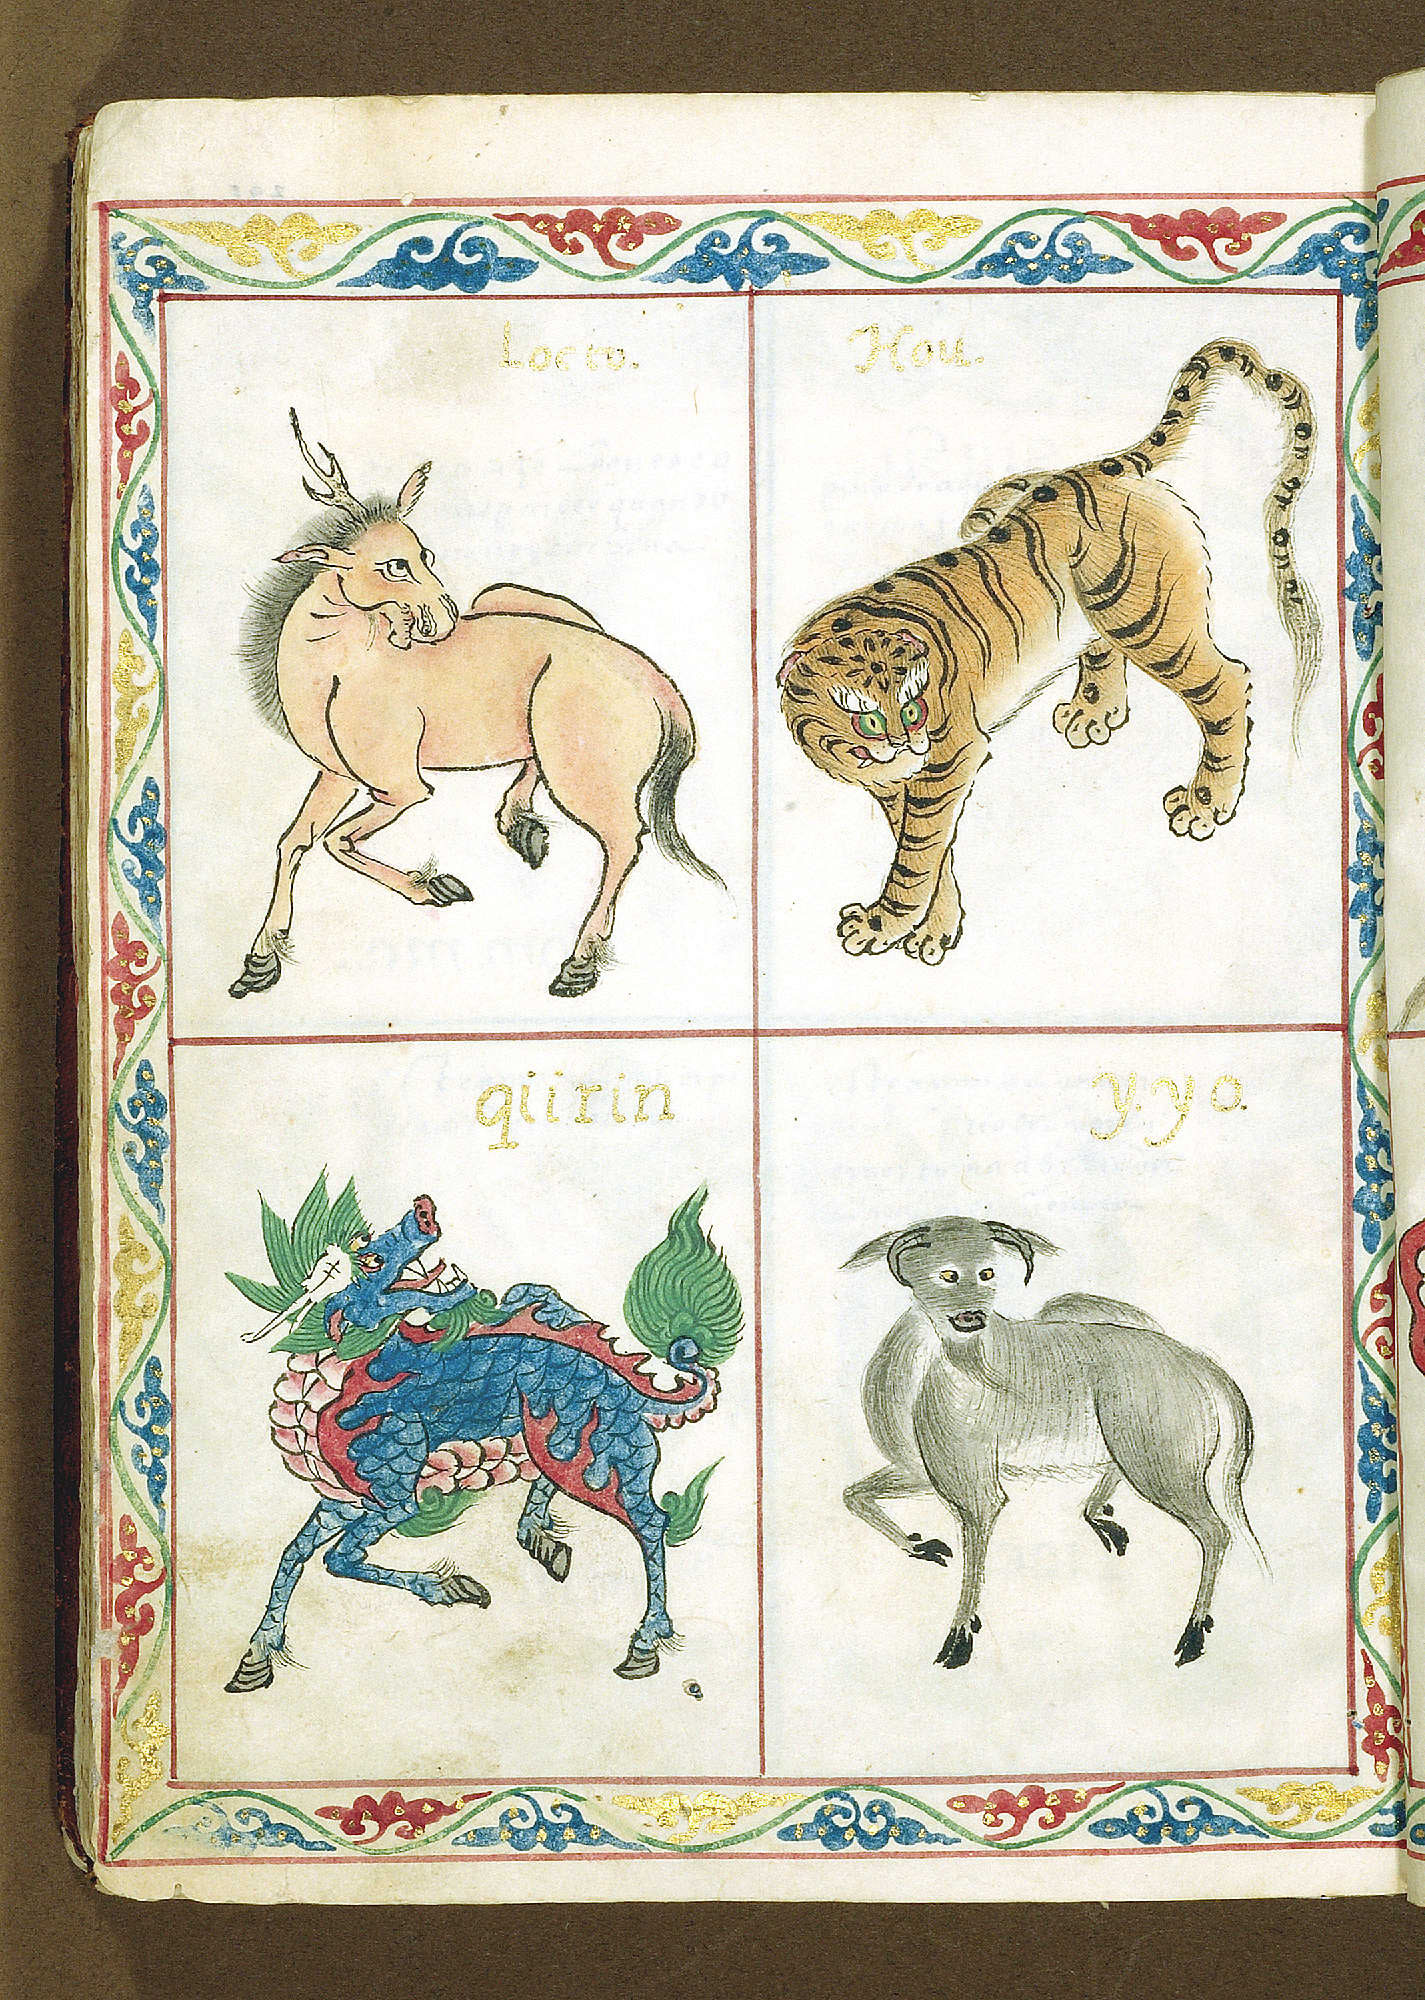 Locto.
Hou.
qiirin
y.yo.